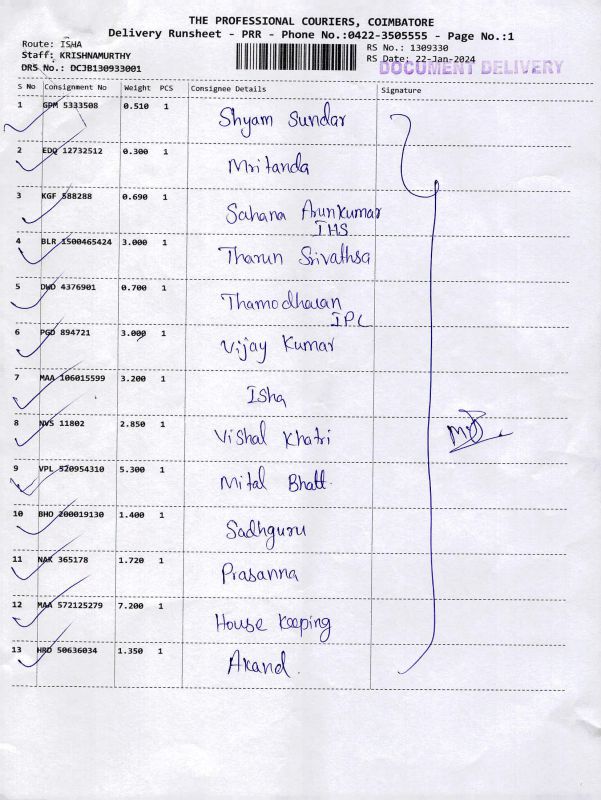 THE PROFESSIONAL COURIERS, COIMBATORE
Delivery Runsheet - PRR - Phone No.:0422-3505555 - Page No.:1
Route: ISHA
Staff: KRISHNAMURTHY
DRS No.: DCJB130933001
RS No.: 1309330
RS Date: 22-Jan-2024
DOCUMENT DELIVERY
S No Consignment No Weight PCS Consignee Details Signature
1 GPM 5333508 0.510 1 Shyam Sundar
2 EDQ 12732512 0.300 1 Mritanda
3 KGF 588288 0.690 1 Sahana Arunkumar
IHS
4 BLR 1500465424 3.000 1 Tharun Srivathsa
5 DWD 4376901 0.700 1 Thamodharan
IPC
6 PGD 894721 3.000 1 Vijay Kumar
7 MAA 106015599 3.200 1 Isha
8 NVS 11802 2.850 1 Vishal Khatri
9 VPL 520954310 5.300 1 Mital Bhatt
10 BHO 200019130 1.400 1 Sadhguru
11 NAK 365178 1.720 1 Prasanna
12 MAA 572125279 7.200 1 House Keeping
13 HRD 50636034 1.350 1 Anand.